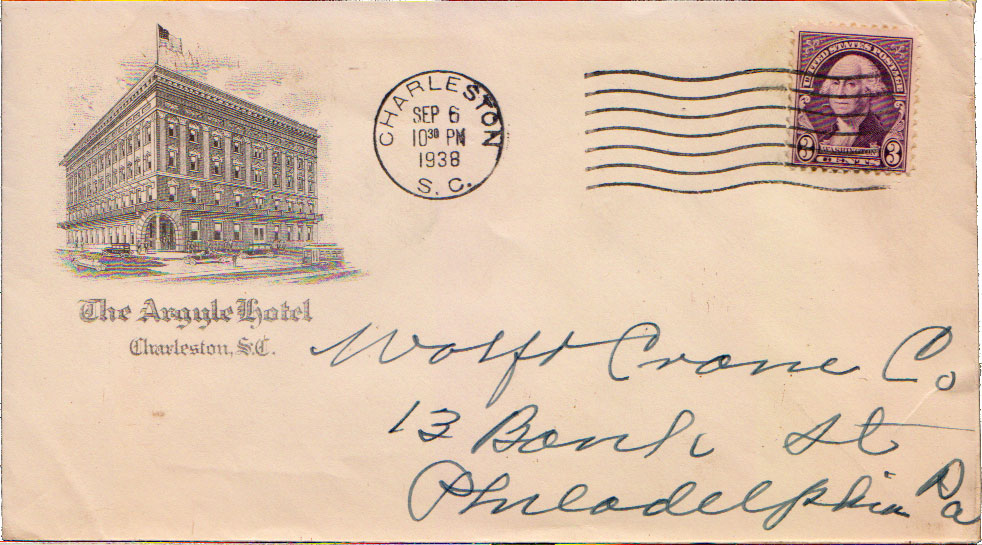 The Argyle Hotel
Charleston, S.C.
CHARLESTON
SEP 6
10 30 PM
1938
S. C.
UNITED STATES POSTAGE
WASHINGTON
3 CENTS 3
Wolf & Crane Co
13 Bank St
Philadelphia Pa